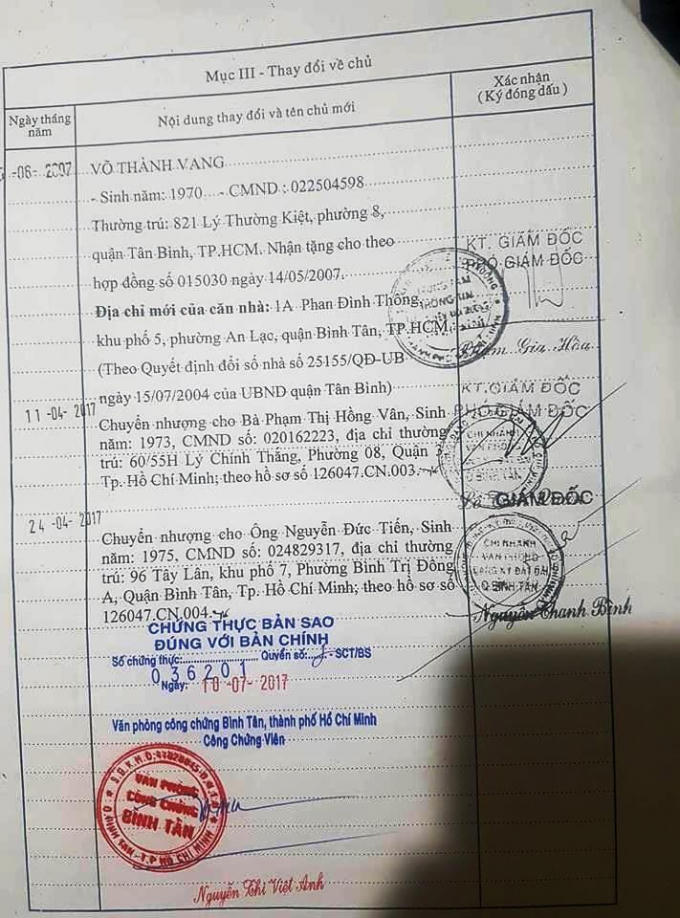 Mục III - Thay đổi về chủ
Ngày tháng năm
Nội dung thay đổi và tên chủ mới
Xác nhận
(Ký đóng dấu)
-06- 2007
VÕ THÀNH VANG
- Sinh năm: 1970 - CMND : 022504598
Thường trú: 821 Lý Thường Kiệt, phường 8,
quận Tân Bình, TP.HCM. Nhận tặng cho theo
hợp đồng số 015030 ngày 14/05/2007.
KT. GIÁM ĐỐC
PHÓ GIÁM ĐỐC
Địa chỉ mới của căn nhà: 1A Phan Đình Thông,
khu phố 5, phường An Lạc, quận Bình Tân, TP.HCM
(Theo Quyết định đổi số nhà số 25155/QĐ-UB
Gia Hòa
ngày 15/07/2004 của UBND quận Tân Bình)
KT.GIÁM ĐỐC
PHÓ GIÁM ĐỐC
11-04- 2017
Chuyển nhượng cho Bà Phạm Thị Hồng Vân, Sinh
năm: 1973, CMND số: 020162223, địa chỉ thường
trú: 60/55H Lý Chính Thắng, Phường 08, Quận
Tp. Hồ Chí Minh; theo hồ sơ số 126047.CN.003.
CHI NHÁNH
VĂN PHÒNG
Q.BÌNH TÂN
GIÁM ĐỐC
24-04- 2017
Chuyển nhượng cho Ông Nguyễn Đức Tiến, Sinh
năm: 1975, CMND số: 024829317, địa chỉ thường
trú: 96 Tây Lân, khu phố 7, Phường Bình Trị Đông
A, Quận Bình Tân, Tp. Hồ Chí Minh; theo hồ sơ số
126047.CN.004.
CHI NHÁNH
VĂN PHÒNG
ĐĂNG KÝ ĐẤT ĐAI
Q.BÌNH TÂN
Nguyễn Thanh Bình
CHỨNG THỰC BẢN SAO
ĐÚNG VỚI BẢN CHÍNH
Số chứng thực: 036201 Quyển số: - SCT/BS
Ngày: 10-07-2017
Văn phòng công chứng Bình Tân, thành phố Hồ Chí Minh
Công Chứng Viên
VĂN PHÒNG
CÔNG CHỨNG
BÌNH TÂN
Nguyễn Thị Việt Anh